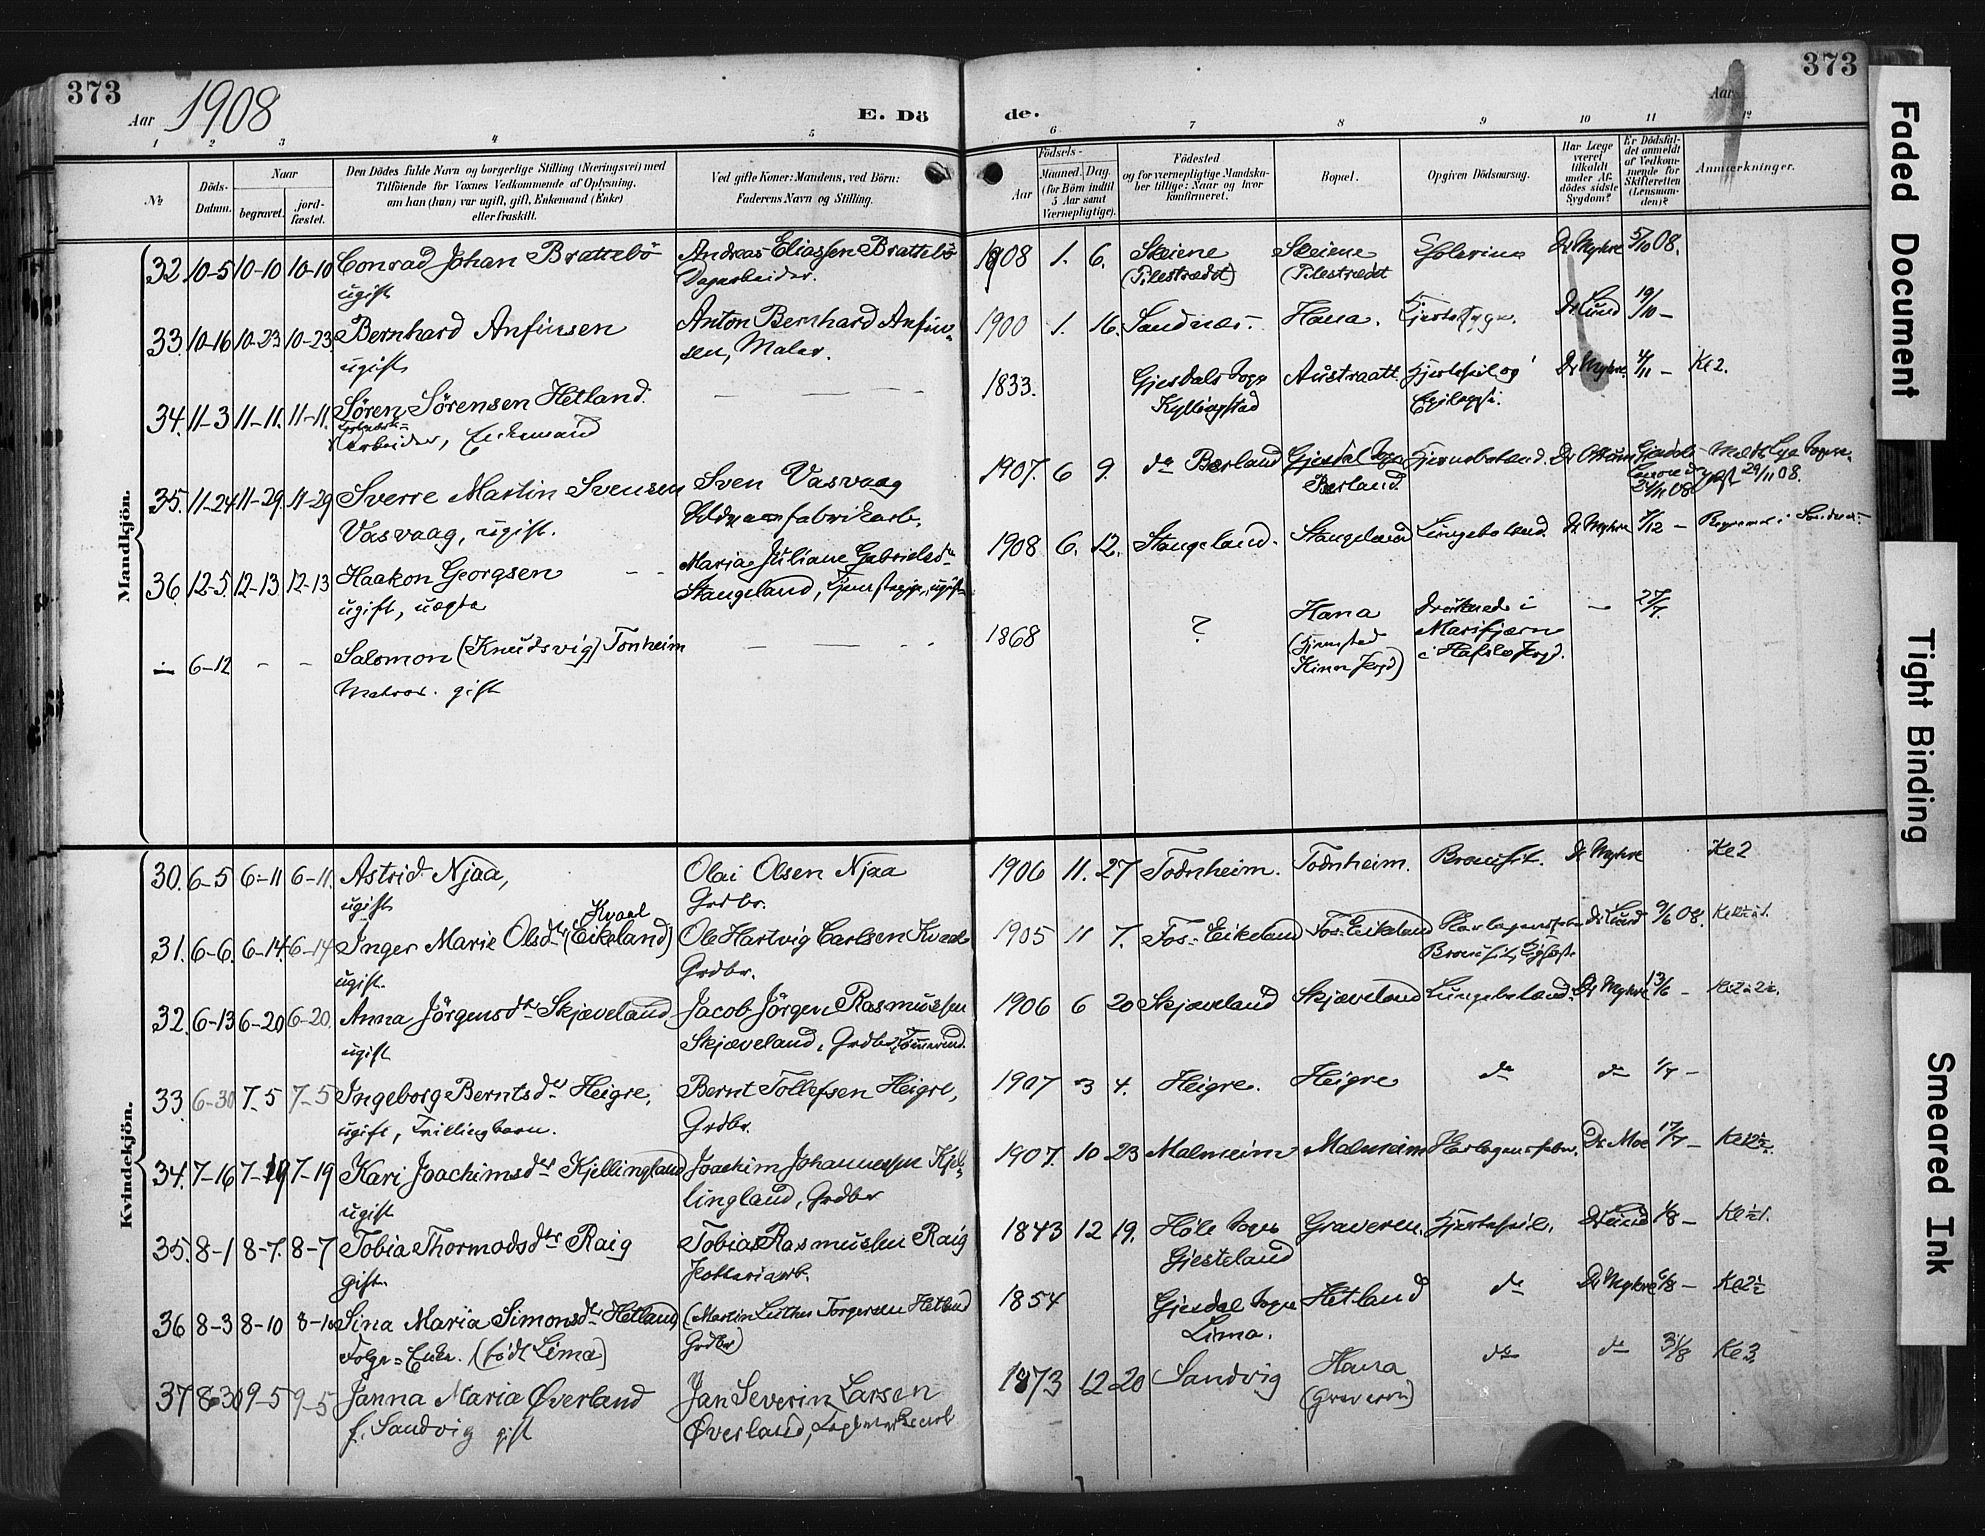 373
373
Aar 1908
E. Dö
de.
Aar
1 2 3 4 5 6 7 8 9 10 11 12
№
Döds-Datum.
Naar
begravet.
jord-fæstet.
Den Dödes fulde Navn og borgerlige Stilling (Næringsvei) med
Tilföiende for Voxnes Vedkommende af Oplysning,
om han (hun) var ugift, gift, Enkemand (Enke)
eller fraskilt.
Ved gifte Koner: Mandens, ved Börn:
Faderens Navn og Stilling.
Födsels-
Aar
Maaned. Dag.
(for Börn indtil
5 Aar samt
Værnepligtige).
Födested
og for værnepligtige Mandska-
ber tillige: Naar og hvor
konfirmeret.
Bopæl.
Opgiven Dödsaarsag.
Har Læge
været
tilkaldt
under Af-
dödes sidste
Sygdom?
Er Dödsfal-
det anmeldt
af Vedkom-
mende for
Skifteretten
(Lensman-
den)?
Anmærkninger.
Mandkjön.
32. 10-5 10-10 10-10 Conrad Johan Brattebö Andreas Eliassen Brattebö 1908 1. 6. Skeiene Skeiene Dr Myhre 5/10 08.
ugift Dagarbeider. (Pilestrædet) (Pilestrædet
33. 10-16 10-23 10-23 Bernhard Anfinsen Anton Bernhard Anfin- 1900 1. 16. Sandnæs. Hana. Dr Lund 19/10 -
ugift sen, Maler.
34. 11-3 11-11. 11-11. Sören Sörensen Hetland. 1833. Gjesdals Sogn Austraatt Hjertefeil og Dr Myhre 4/11 - Ke 2.
Arbeider, Enkemand Kyllingstad Epilepsi.
35. 11-24 11-29. 11-29 Sverre Martin Svensen Sven Vasvaag 1907. 6 9. do Bærland Gjesdal Sogn Hjernebetænd. Dr Gjesdals
Vasvaag, ugift. Uldvarefabrikarb. Bærland. 24/11 08 29/11 08.
36. 12-5. 12-13 12-13 Haakon Georgsen Maria Juliane Gabrielsdtr 1908 6. 12. Stangeland. Stangeland Lungebetænd. Dr Myhre 7/12 -
ugift, uægte Stangeland, Tjenestepige, ugift
- 6-12 - - Salomon (Knudsvig) Tonheim 1868 ? Hana druknede i - 27/7.
Matros. gift Marifjæren
i Hafslo
Kvindekjön.
30. 6-5 6-11 6-11. Astrid Njaa, Olai Olsen Njaa 1906 11. 27 Todnheim. Todnheim. Dr Myhre Ke 2
ugift Grdbr.
31. 6-6. 6-14. 6-14 Inger Marie Olsdtr (Eikeland) Kvaal Ole Hartvig Carlsen Kvaal 1905 11 7. Fos-Eikeland Fos-Eikeland Skarlagensfeber Dr Lund 9/6 08.
ugift. Grdbr.
32. 6-13 6-20 6-20. Anna Jörgensdtr Skjæveland Jacob Jörgen Rasmussen 1906 6 20 Skjæveland Skjæveland Lungebetænd. Dr Myhre 13/6 -
ugift Skjæveland, Grdbr,
33. 6-30 7-5 7-5 Ingeborg Berntsdtr Heigre, Bernt Tollefsen Heigre, 1907 3 4. Heigre. Heigre do do 1/7 -
ugift, Trillingbarn. Grdbr.
34. 7-16 7-19 7-19 Kari Joachimsdtr Kjellingland Joachim Johannessen Kjel- 1907. 10 23 Malmeim Malmeim Skarlagensfeber. Dr Moe 17/7 -
ugift lingland, Grdbr
35. 8-1 8-7. 8-7 Tobia Thormodsdtr Raig Tobias Rasmussen Raig 1843 12 19. Höle Sogn Graveren. Hjertefeil. Dr Lund 1/8 -
gift. Potteriarb. Gjesteland
36 8-3 8-10 8-10 Sina Maria Simonsdtr Hetland (Martin Luther Torgersen Hetland 1854 Gjesdal Sogn Hetland do Dr Myhre 6/8 -
Folge-Enke. (född Lima) Grdbr) Lima.
37 8-30 9-5 9-5 Janna Maria Överland Jan Severin Larsen 1873 12 20 Sandvig Hana do do 31/8 Ke 3
f. Sandvig gift Överland, Teglverksarb (Graveren)
Faded Document
Tight Binding
Smeared Ink